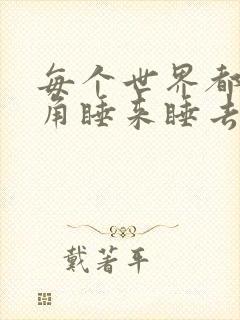 每个世界都
角睡来睡去
戴著平